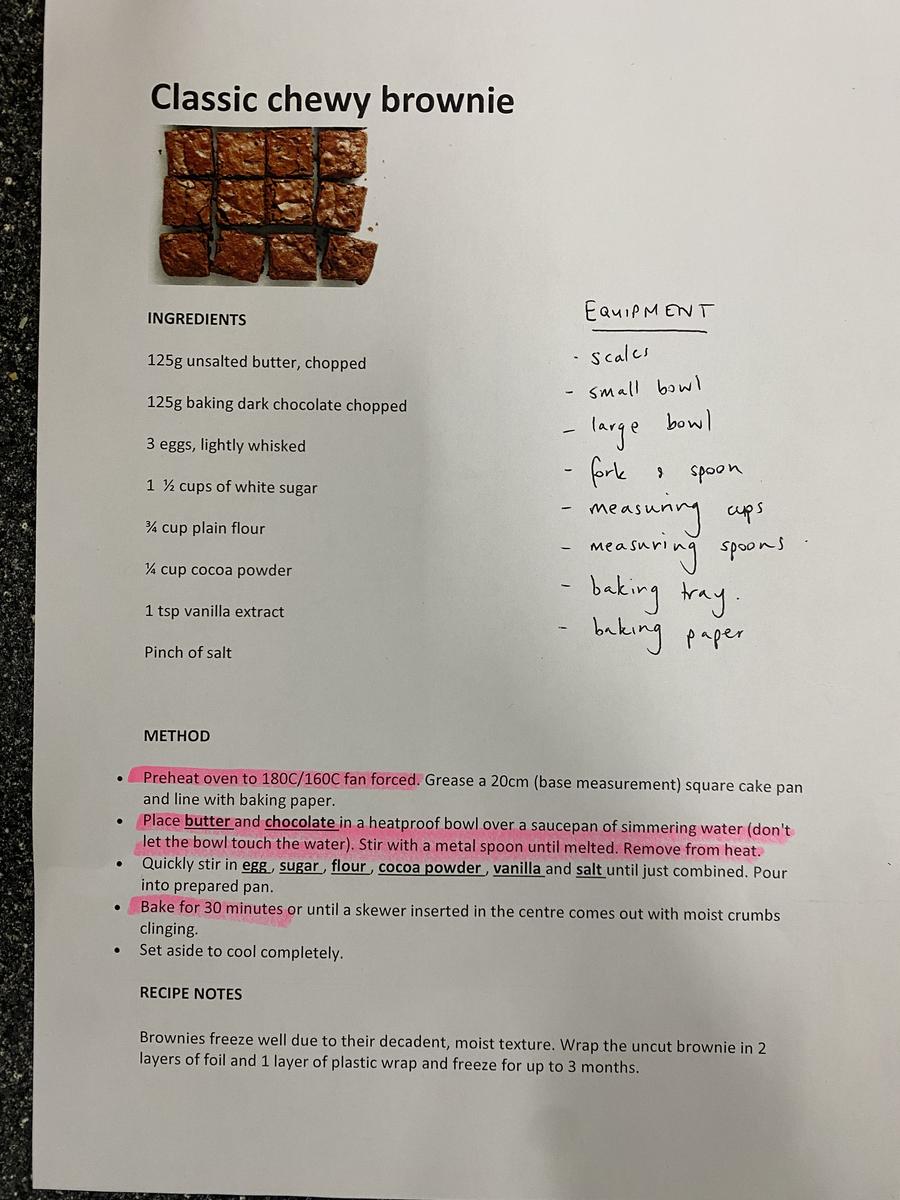 Classic chewy brownie
INGREDIENTS
125g unsalted butter, chopped
125g baking dark chocolate chopped
3 eggs, lightly whisked
1 ½ cups of white sugar
¾ cup plain flour
¼ cup cocoa powder
1 tsp vanilla extract
Pinch of salt
EQUIPMENT
- scales
- small bowl
- large bowl
- fork & spoon
- measuring cups
- measuring spoons
- baking tray.
- baking paper
METHOD
• Preheat oven to 180C/160C fan forced. Grease a 20cm (base measurement) square cake pan
and line with baking paper.
• Place butter and chocolate in a heatproof bowl over a saucepan of simmering water (don't
let the bowl touch the water). Stir with a metal spoon until melted. Remove from heat.
• Quickly stir in egg , sugar , flour , cocoa powder , vanilla and salt until just combined. Pour
into prepared pan.
• Bake for 30 minutes or until a skewer inserted in the centre comes out with moist crumbs
clinging.
• Set aside to cool completely.
RECIPE NOTES
Brownies freeze well due to their decadent, moist texture. Wrap the uncut brownie in 2
layers of foil and 1 layer of plastic wrap and freeze for up to 3 months.